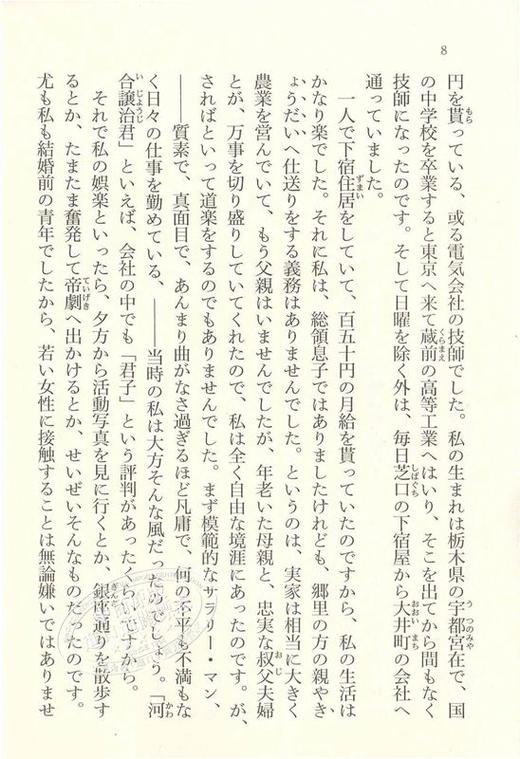 8
円を貰っている、或る電気会社の技師でした。私の生まれは栃木県の宇都宮在で、国
の中学校を卒業すると東京へ来て蔵前の高等工業へはいり、そこを出てから間もなく
技師になったのです。そして日曜を除く外は、毎日芝口の下宿屋から大井町の会社へ
通っていました。
一人で下宿住居をしていて、百五十円の月給を貰っていたのですから、私の生活は
かなり楽でした。それに私は、総領息子ではありましたけれども、郷里の方の親やき
ょうだいへ仕送りをする義務はありませんでした。というのは、実家は相当に大きく
農業を営んでいて、もう父親はいませんでしたが、年老いた母親と、忠実な叔父夫婦
とが、万事を切り盛りしていてくれたので、私は全く自由な境涯にあったのです。が、
さればといって道楽をするのでもありませんでした。まず模範的なサラリー・マン、
――質素で、真面目で、あんまり曲がなさ過ぎるほど凡庸で、何の不平も不満もな
く日々の仕事を勤めている、――当時の私は大方そんな風だったのでしょう。「河
合譲治君」といえば、会社の中でも「君子」という評判があったくらいですから。
それで私の娯楽といったら、夕方から活動写真を見に行くとか、銀座通りを散歩す
るとか、たまたま奮発して帝劇へ出かけるとか、せいぜいそんなものだったのです。
尤も私も結婚前の青年でしたから、若い女性に接触することは無論嫌いではありませ